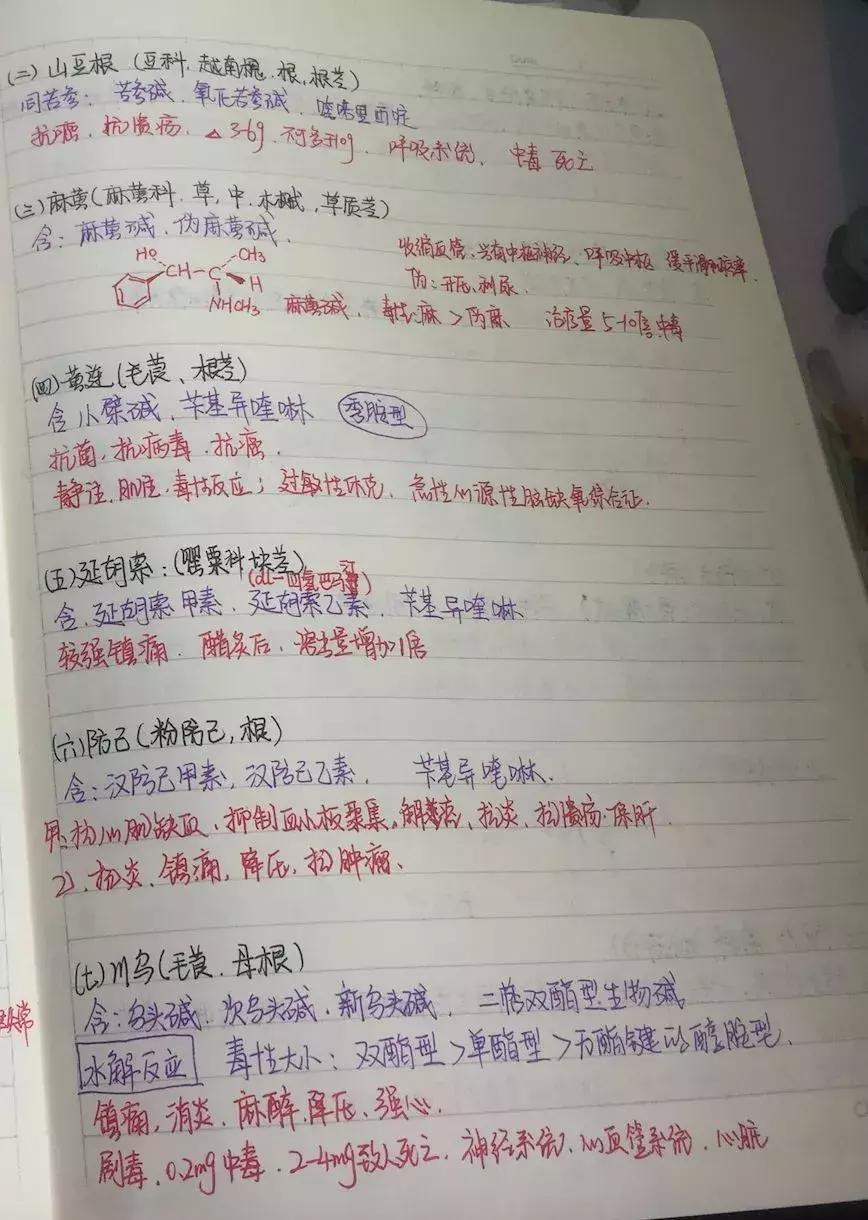 (二) 山豆根 (豆科.越南槐.根.根茎)
同苦参: 苦参碱.氧化苦参碱.喹喏里西啶
抗癌.抗溃疡.△3-6g.不可多于10g.呼吸系统.中毒死亡
(三) 麻黄(麻黄科.草,中.木贼.草质茎)
含: 麻黄碱.伪麻黄碱.
收缩血管.兴奋中枢神经.呼吸中枢
伪: 升压.利尿.
HO CH3
CH-C H
NHCH3 麻黄碱. 毒性:麻>伪麻 治疗量5-10倍中毒
(四)黄连(毛茛、根茎)
含小檗碱.苄基异喹啉 季胺型
抗菌,抗病毒.抗癌.
静注.肌注.毒性反应; 过敏性休克、急性心源性脑缺氧综合征.
(五)延胡索:(罂粟科块茎)
(dl-四氢巴马汀)
含.延胡索甲素.延胡索乙素.苄基异喹啉
较强镇痛.醋炙后.溶出量增加1倍
(六)防己(粉防己,根)
含:汉防己甲素,汉防己乙素. 苄基异喹啉.
甲.抗心肌缺血.抑制血小板聚集.解痉.抗炎.抗溃疡.保肝.
乙.抗炎.镇痛,降压.抗肿瘤、
(七)川乌(毛茛.母根)
含:乌头碱.次乌头碱.新乌头碱. 二萜双酯型生物碱
水解反应 毒性大小: 双酯型>单酯型>无酯键的醇胺型.
镇痛,消炎.麻醉.降压、强心.
剧毒.0.2mg中毒.2-4mg致人死亡.神经系统.心血管系统.心脏